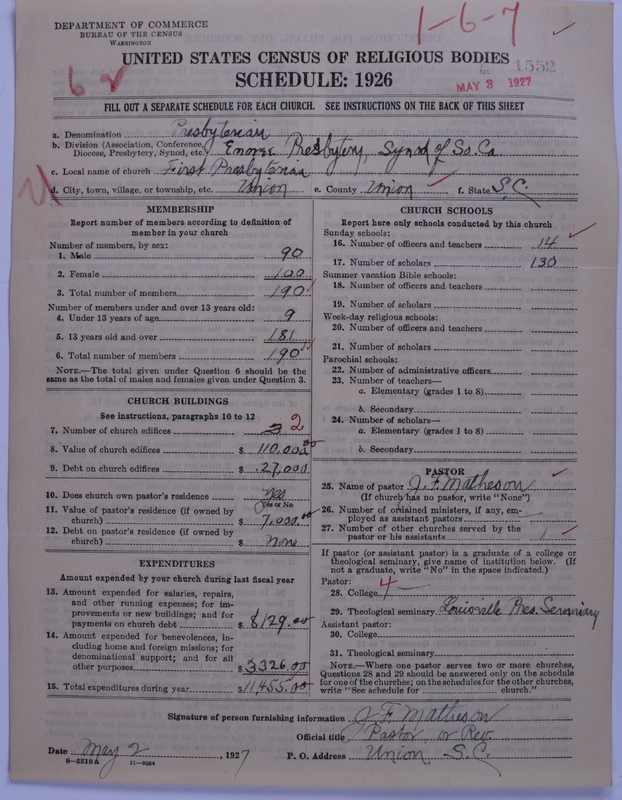 DEPARTMENT OF COMMERCE
BUREAU OF THE CENSUS
WASHINGTON
1-6-7
UNITED STATES CENSUS OF RELIGIOUS BODIES
SCHEDULE: 1926
1552
MAY 3 1927
FILL OUT A SEPARATE SCHEDULE FOR EACH CHURCH. SEE INSTRUCTIONS ON THE BACK OF THIS SHEET
a. Denomination Presbyterian
b. Division (Association, Conference, Diocese, Presbytery, Synod, etc.) Enoree Presbytery, Synod of So. Ca
c. Local name of church First Presbyterian
d. City, town, village, or township, etc. Union e. County Union f. State S.C.
MEMBERSHIP
Report number of members according to definition of
member in your church
Number of members, by sex:
1. Male 90
2. Female 100
3. Total number of members 190
Number of members under and over 13 years old:
4. Under 13 years of age 9
5. 13 years old and over 181
6. Total number of members 190
NOTE.—The total given under Question 6 should be
same as the total of males and females given under Question 3.
CHURCH BUILDINGS
See instructions, paragraphs 10 to 12
7. Number of church edifices 2
8. Value of church edifices $ 110,000.00
9. Debt on church edifices $ 27,000
10. Does church own pastor's residence Yes
Yes or No
11. Value of pastor's residence (if owned by
church) $ 7,000.00
12. Debt on pastor's residence (if owned by
church) $ None
EXPENDITURES
Amount expended by your church during last fiscal year
13. Amount expended for salaries, repairs,
and other running expenses; for im-
provements or new buildings; and for
payments on church debt $ 8129.00
14. Amount expended for benevolences, in-
cluding home and foreign missions; for
denominational support; and for all
other purposes $ 3326.00
15. Total expenditures during year $ 11,455.00
CHURCH SCHOOLS
Report here only schools conducted by this church
Sunday schools:
16. Number of officers and teachers 14
17. Number of scholars 130
Summer vacation Bible schools:
18. Number of officers and teachers
19. Number of scholars
Week-day religious schools:
20. Number of officers and teachers
21. Number of scholars
Parochial schools:
22. Number of administrative officers
23. Number of teachers—
a. Elementary (grades 1 to 8)
b. Secondary
24. Number of scholars—
a. Elementary (grades 1 to 8)
b. Secondary
PASTOR
25. Name of pastor J. F. Matheson
(If church has no pastor, write "None")
26. Number of ordained ministers, if any, em-
ployed as assistant pastors
27. Number of other churches served by the
pastor or his assistants 1
If pastor (or assistant pastor) is a graduate of a college or
theological seminary, give name of institution below. (If
not a graduate, write "No" in the space indicated.)
Pastor: 4
28. College
29. Theological seminary Louisville Pres. Seminary
Assistant pastor:
30. College
31. Theological seminary
NOTE.—Where one pastor serves two or more churches,
Questions 28 and 29 should be answered only on the schedule
for one of the churches; on the schedules for the other churches,
write "See schedule for church."
Signature of person furnishing information J. F. Matheson
Official title Pastor or Rev.
Date May 2, 1927 P. O. Address Union, S.C.
8-5518 a 11-9054